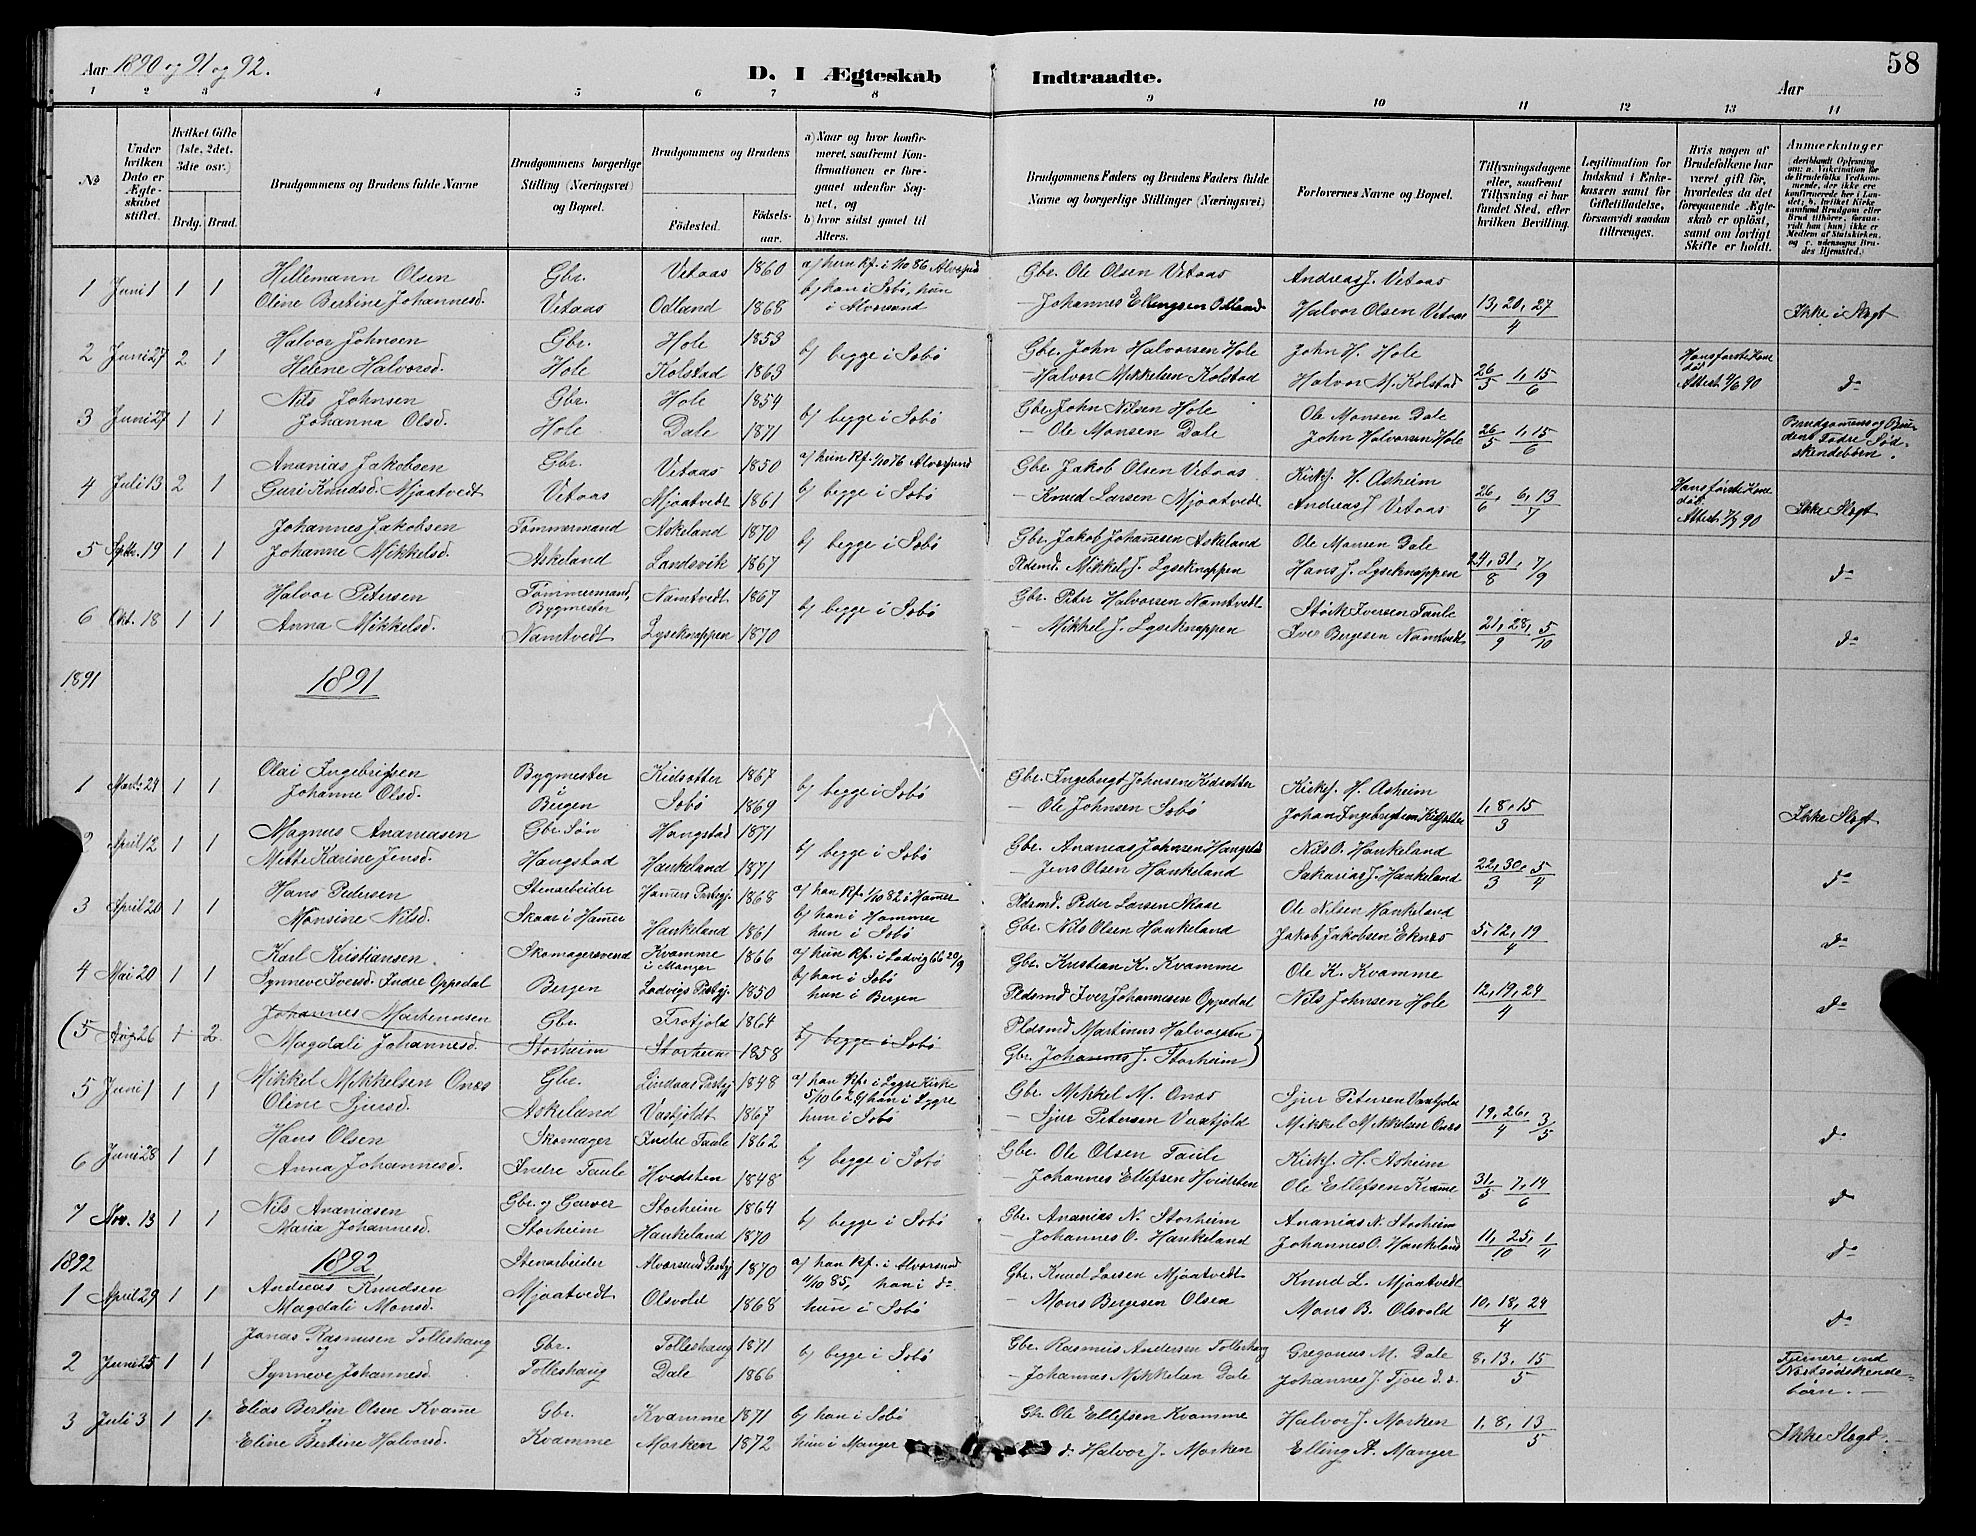 Aar 1890 og 91 og 92.
D. I Ægteskab Indtraadte.
Aar
58
1 2 3 4 5 6 7 8 9 10 11 12 13 14
No
Under hvilken Dato er Ægteskabet stiftet.
Hvilket Gifte (1ste, 2det, 3die osv.)
Brdg. Brud.
Brudgommens og Brudens fulde Navne
Brudgommens borgerlige Stilling (Næringsvei) og Bopæl.
Brudgommens og Brudens
Fødested.
Fødselsaar.
a) Naar og hvor konfirmeret, saafremt Konfirmationen er foregaaet udenfor Sognet, og
b) hvor sidst gaaet til Alters.
Brudgommens Faders og Brudens Faders fulde Navne og borgerlige Stillinger (Næringsvei)
Forlovernes Navne og Bopæl.
Tillysningsdagene eller, saafremt Tillysning ei har fundet Sted, efter hvilken Bevilling.
Legitimation for Indskud i Enkekassen samt for Giftetilladelse, forsaavidt saadan tiltrænges.
Hvis nogen af Brudefolkene har været gift før, hvorledes da det foregaaende Ægteskab er opløst, samt om lovligt Skifte er holdt.
Anmærkninger
1 Juni 1 1 1 Hillemann Olsen Gbr. Vetaas 1860 a) hun Kf. i 1/10 86 Alversund Gbr. Ole Olsen Vetaas Andreas J. Vetaas
Oline Bertine Johannesd. Vetaas Odland 1868 b) han i Sæbø, hun i Alversund - Johannes Ellingsen Odland Halvor Olsen Vetaas 13, 20, 27/4 Ikke i Slægt
2 Juni 27 2 1 Halvor Johnsen Gbr. Hole 1853 b) begge i Sæbø Gbr. John Halvorsen Hole John H. Hole Hans første Kone død
Helene Halvorsd. Hole Kolstad 1863 - Halvor Mikkelsen Kolstad Halvor M. Kolstad 26/5 1, 15/6 Attest 4/6 90 do
3 Juni 27 1 1 Nils Johnsen Gbr. Hole 1854 b) begge i Sæbø Gbr. John Nilsen Hole Ole Monsen Dale
Johanna Olsd. Hole Dale 1871 - Ole Monsen Dale John Halvorsen Hole 26/5 1, 15/6 Brudgomens og Brudens Fædre Sødskendebørn.
4 Juli 13 2 1 Ananias Jakobsen Gbr. Vetaas 1850 a) hun Kf. 1/10 76 Alversund Gbr. Jakob Olsen Vetaas Kirkes. H. Asheim Hans første Kone død.
Guri Knudsd. Mjaatvedt Vetaas Mjaatvedt 1861 b) begge i Sæbø - Knud Larsen Mjaatvedt Andreas J. Vetaas 26/6, 6, 13/7 Attest 7/7 90 Ikke Slægt
5 Septbr. 19 1 1 Johannes Jakobsen Tømmermand Askeland 1870 b) begge i Sæbø Gbr. Jakob Johannesen Askeland Ole Monsen Dale
Johanne Mikkelsd. Askeland Landsvik 1867 Pldsmd. Mikkel J. Lyseknappen Hans J. Lyseknappen 24, 31/8, 7/9 do
6 Okt. 18 1 1 Halvor Petersen Tømmermand, Bygmester Namtvedt 1867 b) begge i Sæbø Gbr. Peter Halvorsen Namtvedt Størk Iversen Taule
Anna Mikkelsd. Namtvedt Lyseknappen 1870 - Mikkel J. Lyseknappen Iver Bergesen Namtvedt 21, 28/9, 5/10 do
1891 1891
1 Marts 24 1 1 Olai Ingebrigtsen Bygmester i Kidsætter 1867 b) begge i Sæbø Gbr. Ingebrigt Johnsen Kidsætter Kirkes. H. Asheim
Johanne Olsd. Bergen Sæbø 1869 - Ole Johnsen Sæbø Johan Ingebrigtsen Kidsætter 1, 8, 15/3 Ikke Slægt
2 April 12 1 1 Magnus Ananiasen Gbr. Søn Hangstad 1871 b) begge i Sæbø Gbr. Ananias Johnsen Hangstad Nils O. Hankeland
Mette Karine Jensd. Hangstad Hankeland 1871 - Jens Olsen Hankeland Sakarias J. Hankeland 22, 30/3, 5/4 do
3 April 20 1 1 Hans Pedersen Stenarbeider Hamers Prstgj. 1868 a) han Kf. 1/10 82 i Hamer Pldsmd. Peder Larsen Skaar Ole Nilsen Hankeland
Monsine Nilsd. Skaar i Hamer Hankeland 1861 b) han i Hammer hun i Sæbø Gbr. Nils Olsen Hankeland Jakob Jakobsen Eknes 5, 12, 19/4 do
4 Mai 20 1 1 Karl Kristiansen Skomagersvend Kvamme i Manger 1866 a) hun Kf. i Ladvig 66 20/9 Gbr. Kristian K. Kvamme Ole K. Kvamme
Synneve Iversd. Indre Oppedal Bergen Ladvigs Prstgj. 1850 b) han i Sæbø hun i Bergen Pldsmd Iver Johannesen Oppedal Nils Johnsen Hole 12, 19, 24/4 do
(5 Aug. 26 1 2 Johannes Martinusen Gbr. Trotjold 1864 b) begge i Sæbø Pldsmd Martinus Halvorsen
Magdali Johannesd. Storheim Storheim 1858 Gbr. Johannes J. Storheim)
5 Juni 1 1 1 Mikkel Mikkelsen Onæs Gbr. Lindaas Prstgj. 1848 a) han Kf. i Lygre Kirke 5/10 62 b) han i Lygre Gbr. Mikkel M. Onæs Sjur Petersen Vaxtjold
Oline Sjursd. Askeland Vaxtjoldt 1867 hun i Sæbø - Sjur Petersen Vaxtjold Mikkel Mikkelsen Onæs 19, 26/4, 3/5 do
6 Juni 28 1 1 Hans Olsen Skomager Indre Taule 1862 b) begge i Sæbø Gbr. Ole Olsen Taule Kirkes. H. Asheim
Anna Johannesd. Indre Taule Hvidsten 1848 - Johannes Ellefsen Hvidsten Ole Ellefsen Kvame 31/5, 7, 14/6 do
7 Nov. 13 1 1 Nils Ananiasen Gbr. og Garver Storheim 1864 b) begge i Sæbø Gbr. Ananias N. Storheim Ananias N. Storheim
Maria Johannesd. Storheim Hankeland 1870 - Johannes O. Hankeland Johannes O. Hankeland 11, 25/10, 1/11 do
1892 1892
1 April 29 1 1 Andreas Knudsen Stenarbeider Alversund Prstgj. 1870 a) han Kf. i Alversund 4/10 85, han i do Gbr. Knud Larsen Mjaatvedt Knud L. Mjaatvedt
Magdali Monsd. Mjaatvedt Olsvold 1868 hun i Sæbø - Mons Bergesen Olsen Mons B. Olsvold 10, 18, 24/4 do
2 Juni 25 1 1 Jonas Rasmusen Tolleshaug og Gbr. Tolleshaug 1871 b) begge i Sæbø Gbr. Rasmus Andersen Tolleshaug Gregorius M. Dale 8, 13, 15/5 Fjernere end Næstsødskendebørn.
Synneve Johannesd. Tolleshaug Dale 1866 - Johannes Mikkelsen Dale Johannes J. Fjore
3 Juli 3 1 1 Elias Bertin Olsen Kvame og Gbr. Kvamme 1871 b) han i Sæbø Gbr Ole Ellefsen Kvamme Halvor J. Morken 1, 8, 13/5
Eline Bertine Halvorsd. Kvamme Morken 1872 hun i Manger do Halvor J. Morken Elling A. Manger Ikke Slægt.